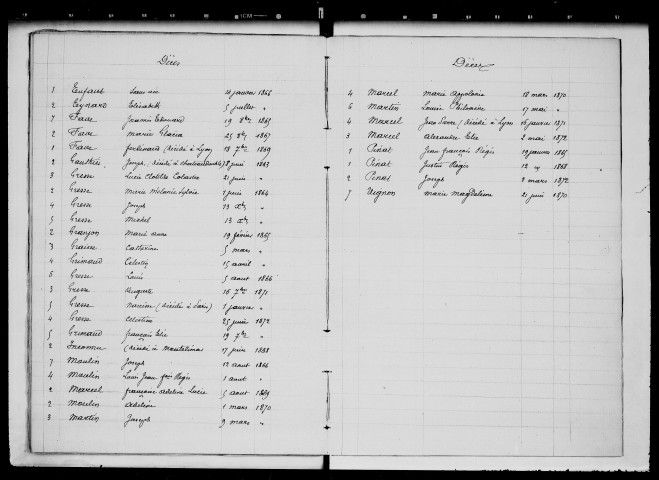 Décès
1 Enfant Sans vie 10 janvier 1866
2 Eynard Elisabeth 5 juillet "
7 Faure Jeannis Edouard 19 8bre 1867
2 Faure Marie Maria 25 8bre 1867
1 Faure ferdinand (décédé à Lyon) 18 7bre 1869
2 Gauthier Joseph, (décédé à chateauneuf) 8 janvier 1863
3 Gresse Lucie Clotilde 21 juin "
2 Gresse marie Mélanie Sylvie 1 janvier 1864
4 Gresse Joseph 13 Xbre "
5 Gresse Michel 13 Xbre "
2 Granjon Marie anne 19 février 1865
3 Graisse Catherine 5 mars "
4 Grimaud Célestin 15 avril "
6 Gresse Louis 5 aout 1866
3 Gresse auguste 16 7bre 1871
5 Gresse (décédé à Paris) 1 janvier "
4 Gresse Célestine 25 juin 1872
5 Grimaud françois Elie 19 7bre "
2 Inconnu (décédé à Montélimar) 17 juin 1868
7 Moulin Joseph 12 aout 1866
4 Moulin Louis Jean fois Régis 1 aout "
2 Marcel françoise adeline Lucie 5 aout 1869
2 Moulin adeline 1 mars 1870
3 Martin Joseph 9 mars "
Décès
4 Marcel marie appolonie 18 mars 1870
6 Martin Louise Philomène 17 mai "
4 Marcel Jean Pierre (décédé à Lyon) 16 janvier 1871
3 Marcel alexandre Elie 2 mai 1872
1 Pinat Jean françois Régis 19 janvier 1865
1 Pinat Justin Régis 12 1868
2 Pinat Joseph 2 mars 1872
7 Vignon marie magdeleine 21 juin 1870